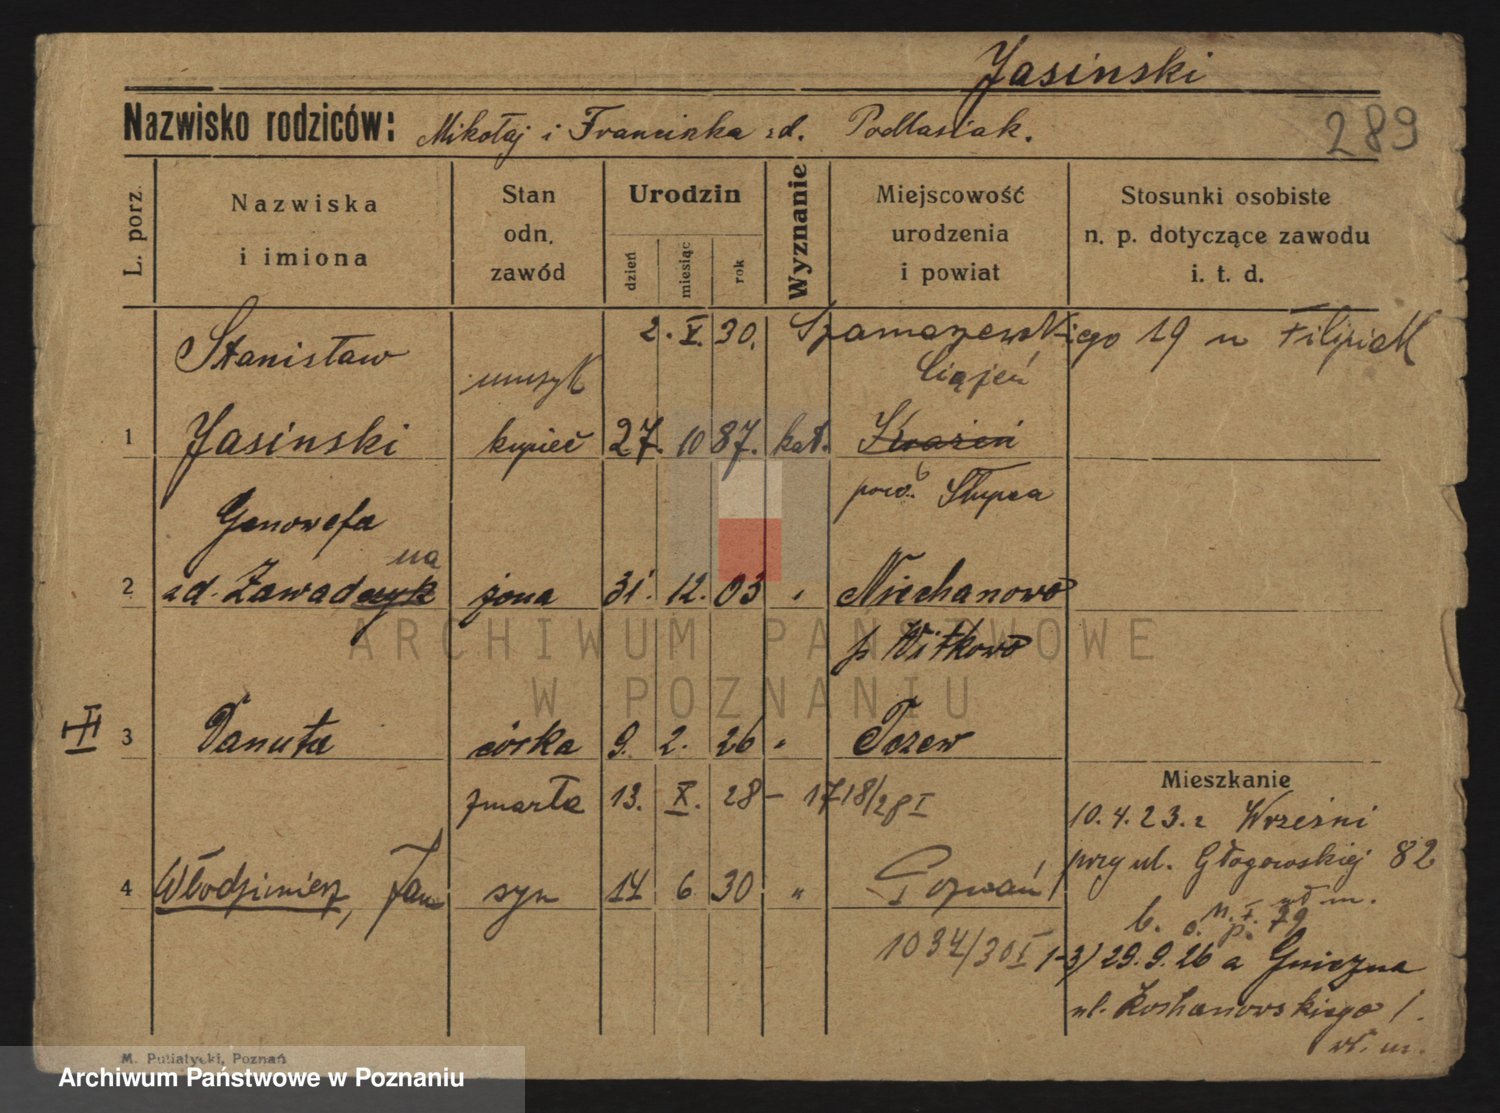 Jasinski
Nazwisko rodziców: Mikołaj i Franciszka zd. Podlasiak.
289
L. porz.
Nazwiska
i imiona
Stan
odn.
zawód
Urodzin
dzień
miesiąc
rok
Wyznanie
Miejscowość
urodzenia
i powiat
Stosunki osobiste
n. p. dotyczące zawodu
i. t. d.
2. V. 30. Szamarzewskiego 19 u Filipiak
Stanisław
muzyk
Ciążeń
1 Jasinski kupiec 27. 10 87. kat.
pow. Słupca
Genowefa
na
2 zd. Zawadczyk żona 31. 12. 03 " Niechanowo
p. Witkowo
3 Danuta córka 9. 2. 26 " Tczew
zmarła 13. X. 28 – 1718/28 I
4 Włodzimierz, Jan syn 14 6. 30 " Poznań
1034/30 I
Mieszkanie
10.4.23. z Wrześni
przy ul. Głogowskiej 82
wł. m.
1-3) 29.9.26 z Gniezna
ul. Kochanowskiego 1.
wł. m.
M. Putiatycki, Poznań
ARCHIWUM PAŃSTWOWE
W POZNANIU
Archiwum Państwowe w Poznaniu